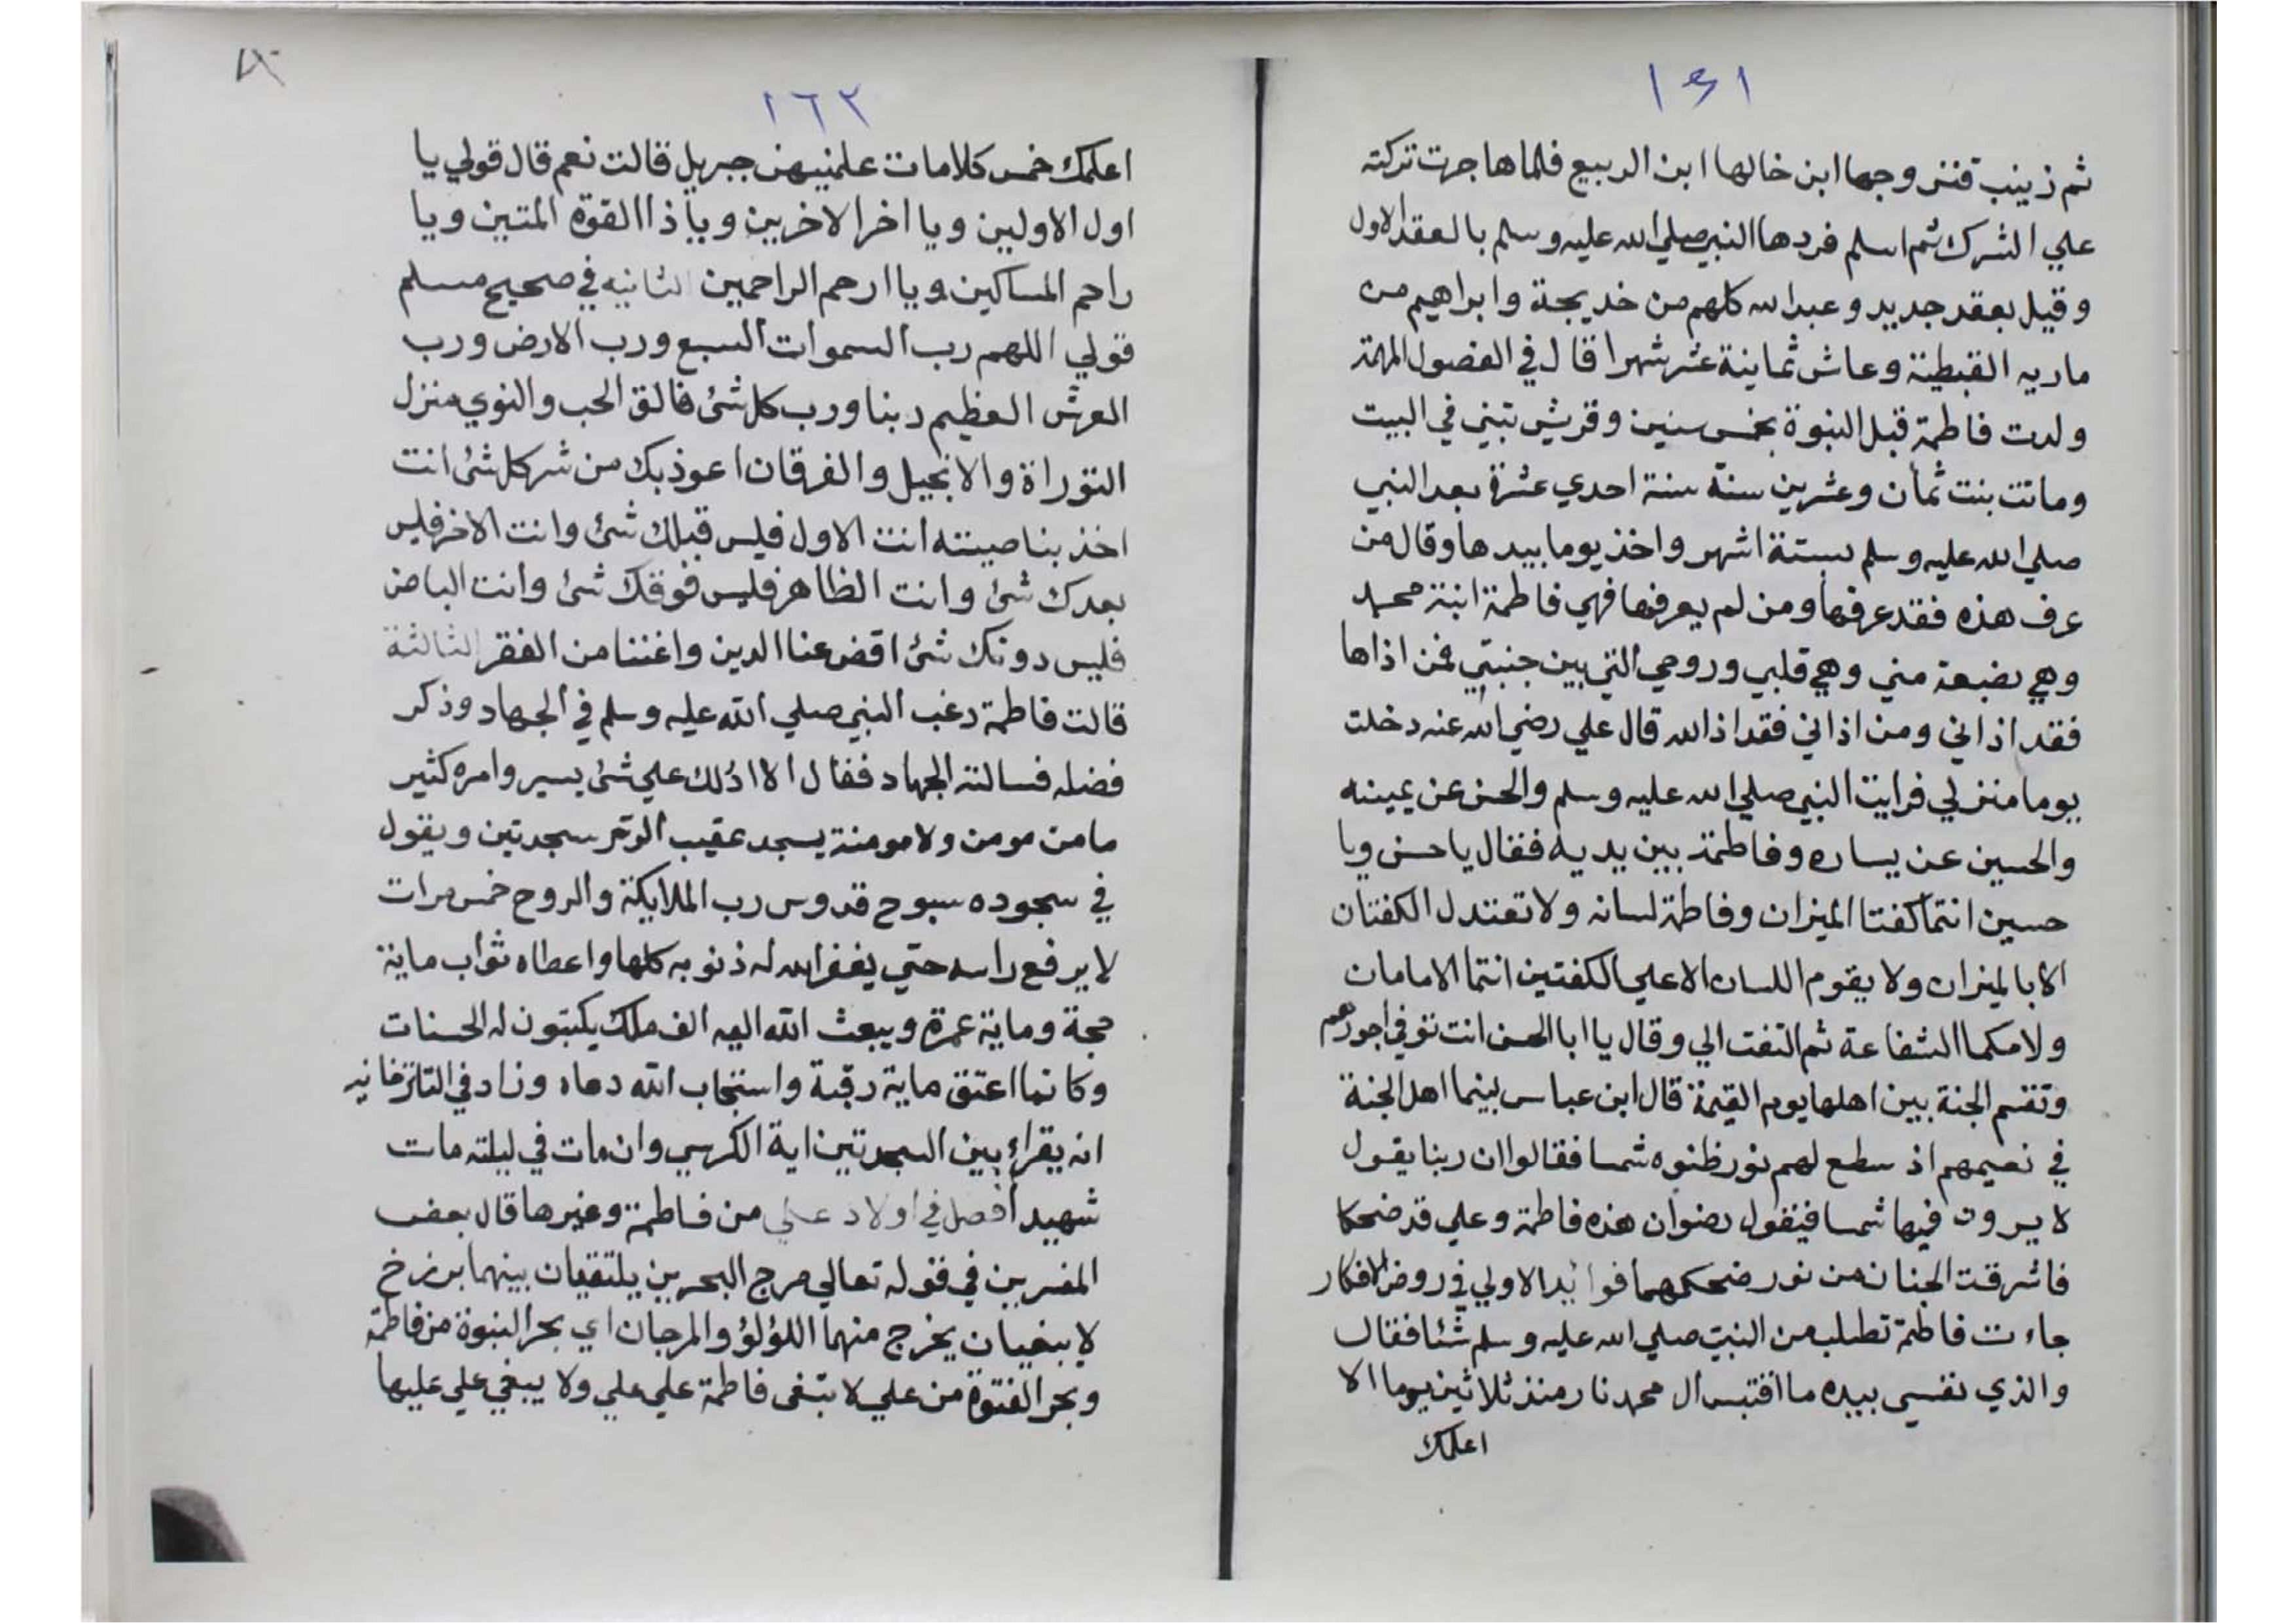 ١٤١
ثم زينب فتزوجها ابن خالها ابن الربيع فلما هاجرت تركته
علي الشرك ثم اسلم فردها النبي صلي الله عليه وسلم بالعقد الاول
وقيل بعقد جديد وعبد الله كلهم من خديجة وابراهيم من
ماريه القبطية وعاش ثمانية عشر شهرا قال في الفصول المهمة
ولدت فاطمة قبل النبوة بخمس سنين وقريش تبني في البيت
وماتت بنت ثمان وعشرين سنة سنة احدي عشرة بعد النبي
صلي الله عليه وسلم بستة اشهر واخذ يوما بيدها وقال من
عرف هذه فقد عرفها ومن لم يعرفها فهي فاطمة ابنة محمد
وهي بضعة مني وهي قلبي وروحي التي بين جنبتي فمن اذاها
فقد اذاني ومن اذاني فقد اذا الله قال علي رضي الله عنه دخلت
يوما منزلي فرايت النبي صلي الله عليه وسلم والحسن عن يمينه
والحسين عن يساره وفاطمة بين يديه فقال يا حسن ويا
حسين انتما كفتا الميزان وفاطمة لسانه ولا تعتدل الكفتان
الا بالميزان ولا يقوم اللسان الا علي الكفتين انتما الامامان
ولامكما الشفاعة ثم التفت الي وقال يا ابا الحسن انت توفي اجورهم
وتقسم الجنة بين اهلها يوم القيمة قال ابن عباس بينما اهل الجنة
في نعيمهم اذ سطع لهم نور ظنوه شمسا فقالوا ان ربنا يقول
لا يرون فيها شمسا فيقول رضوان هذه فاطمة وعلي قد ضحكا
فاشرقت الجنان من نور ضحكهما فوايد الاولي في روض الافكار
جاءت فاطمة تطلب من النبي صلي الله عليه وسلم شئا فقال
والذي نفسي بيده ما اقتبس ال محمد نار منذ ثلاثين يوما الا
اعلمك
١٦٢
اعلمك خمس كلامات علمنيهن جبريل قالت نعم قال قولي يا
اول الاولين ويا اخر الاخرين ويا ذا القوة المتين ويا
راحم المساكين ويا ارحم الراحمين الثانيه في صحيح مسلم
قولي اللهم رب السموات السبع ورب الارض ورب
العرش العظيم ربنا ورب كل شئ فالق الحب والنوي منزل
التوراة والانجيل والفرقان اعوذ بك من شر كل شئ انت
اخذ بناصيته انت الاول فليس قبلك شئ وانت الاخر فليس
بعدك شئ وانت الظاهر فليس فوقك شئ وانت الباطن
فليس دونك شئ اقض عنا الدين واغننا من الفقر الثالثة
قالت فاطمة رغب النبي صلي الله عليه وسلم في الجهاد وذكر
فضله فسالته الجهاد فقال الا ادلك علي شئ يسير وامره كثير
ما من مومن ولا مومنة يسجد عقيب الوتر سجدتين ويقول
في سجوده سبوح قدوس رب الملايكة والروح خمس مرات
لا يرفع راسه حتي يغفر الله له ذنوبه كلها واعطاه ثواب ماية
حجة وماية عمرة ويبعث الله اليه الف ملك يكتبون له الحسنات
وكانما اعتق ماية رقبة واستجاب الله دعاه وزاد في التاترخانيه
انه يقراء بين السجدتين اية الكرسي وان مات في ليلته مات
شهيد أفصل في اولاد علي من فاطمة وغيرها قال بعض
المفسرين في قوله تعالي مرج البحرين يلتقيان بينهما برزخ
لا يبغيان يخرج منهما اللؤلؤ والمرجان اي بحر النبوة من فاطمة
وبحر الفتوة من علي لا تبغى فاطمة علي علي ولا يبغي علي عليها